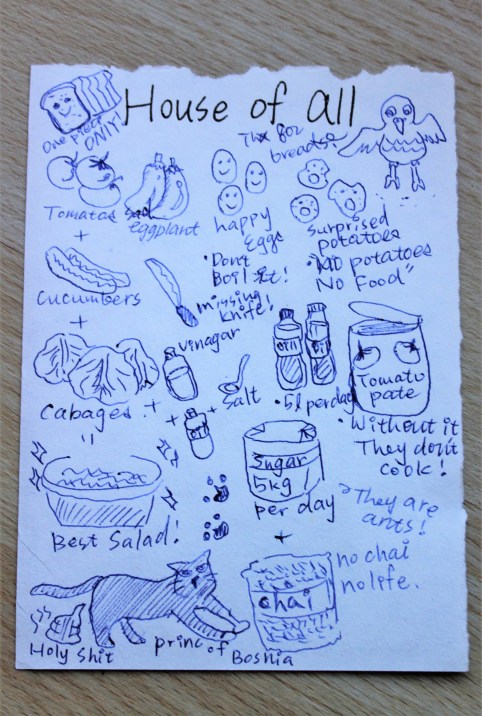 House of all
One piece
ONLY!
Thx for
breads
Tomatos
sad
eggplant
happy
Eggs
surprised
potatoes
"Don't
Boil it!
"No potatoes
No Food"
+
Cucumbers
missing
knife!
+
vinagar
Oil
Oil
Tomato
pate
Cabages
+
+
+
salt
Oil
5l per day
"Without it
They don't
cook!
Sugar
5kg
per day
"They are
ants!
Best Salad!
+
chai
no chai
no life.
Holy Shit
princ of
Bosnia